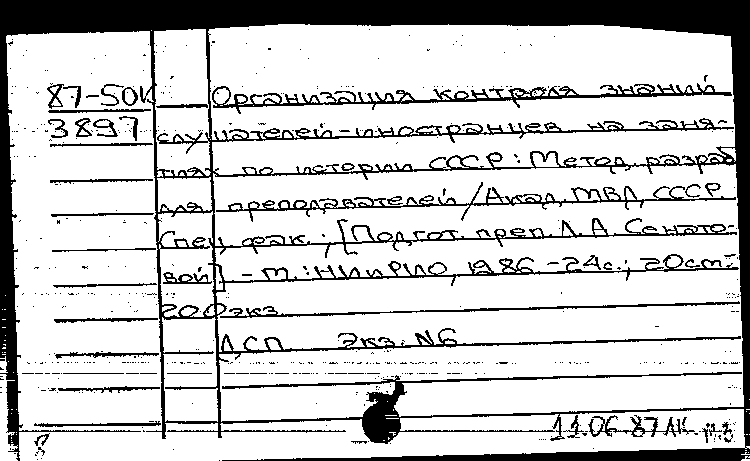 87-50К Организация контроля знаний
3897 слушателей-иностранцев на заня-
тиях по истории СССР: Метод. разраб
для преподавателей / Акад. МВД СССР.
Спец. фак.; [Подгот. преп. Л. А. Сенато-
вой] - М.: НИиРИО, 1986 - 24с.; 20см -
200экз
ДСП Экз. N6
11.06.87 ЛК
8